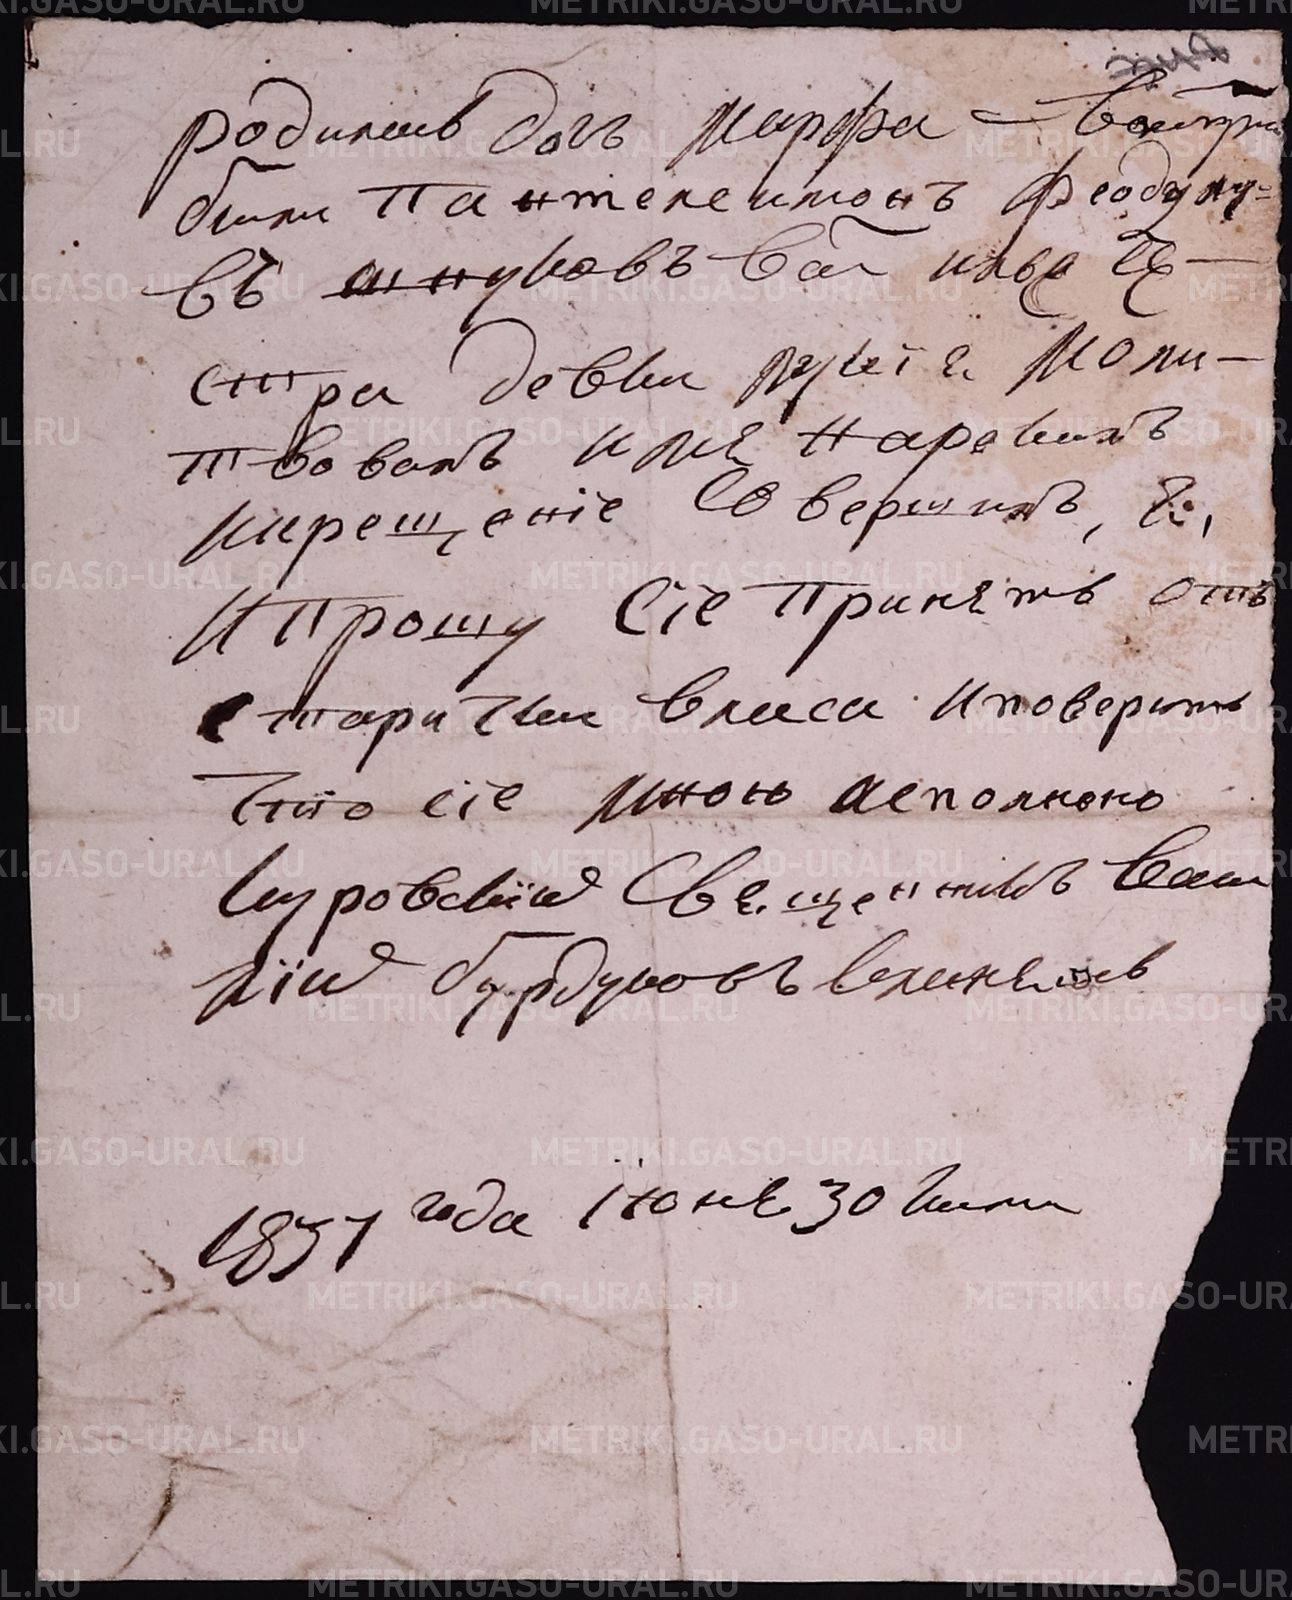 родилась дочь Марфа – Воспри
были Пантелеимонъ Феодуло
въ Власа Илья Се
стра девки Лукія Моли
твовалъ имя нарекилъ
икрещеніе Совершилъ, я,
И прошу Сіе Принять отъ
старички Власа и поверить
Что сіе мною исполнено
Куровскій Священникъ Васи
лій Бурдуковъ кланяюсь
1857 года Іюня 30 числа
METRIKI.GASO-URAL.RU